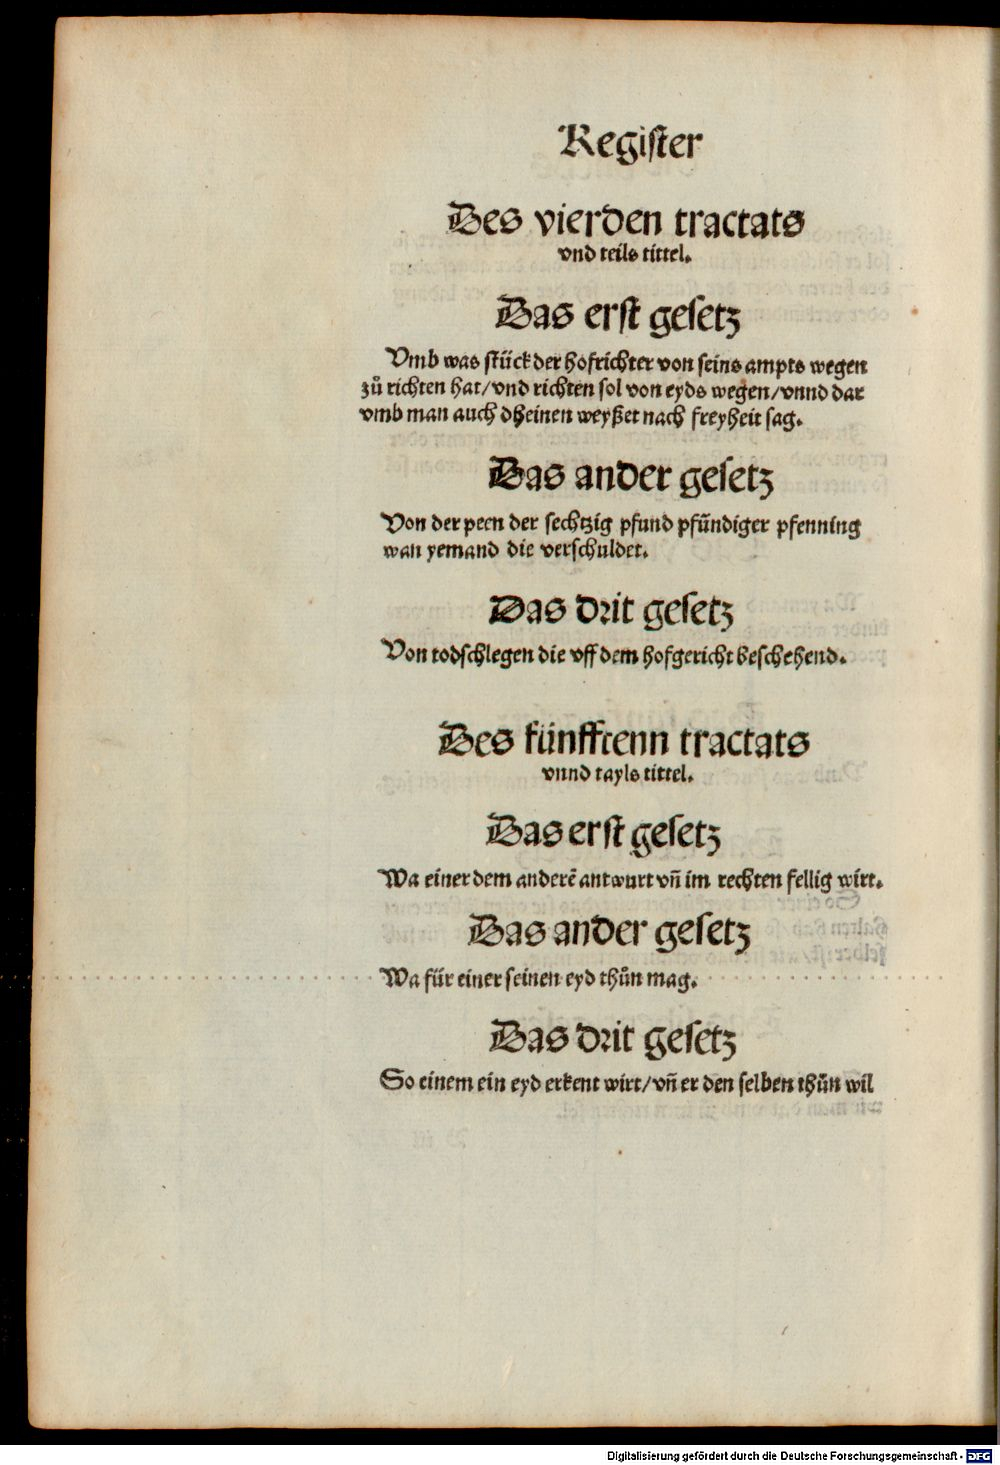 Register
Des vierden tractats
vnd teils tittel.
Das erst gesetz
Vmb was stück der hofrichter von seins ampts wegen
zů richten hat/vnd richten sol von eyds wegen/vnnd dar
vmb man auch dheinen weyßet nach freyheit sag.
Das ander gesetz
Von der peen der sechtzig pfund pfündiger pfenning
wan yemand die verschuldet.
Das drit gesetz
Von todschlegen die vff dem hofgericht beschehend.
Des fünfftenn tractats
vnnd tayls tittel.
Das erst gesetz
Wa einer dem anderē antwurt vñ im rechten fellig wirt.
Das ander gesetz
Wa für einer seinen eyd thůn mag.
Das drit gesetz
So einem ein eyd erkent wirt/vñ er den selben thůn wil
Digitalisierung gefördert durch die Deutsche Forschungsgemeinschaft - DFG